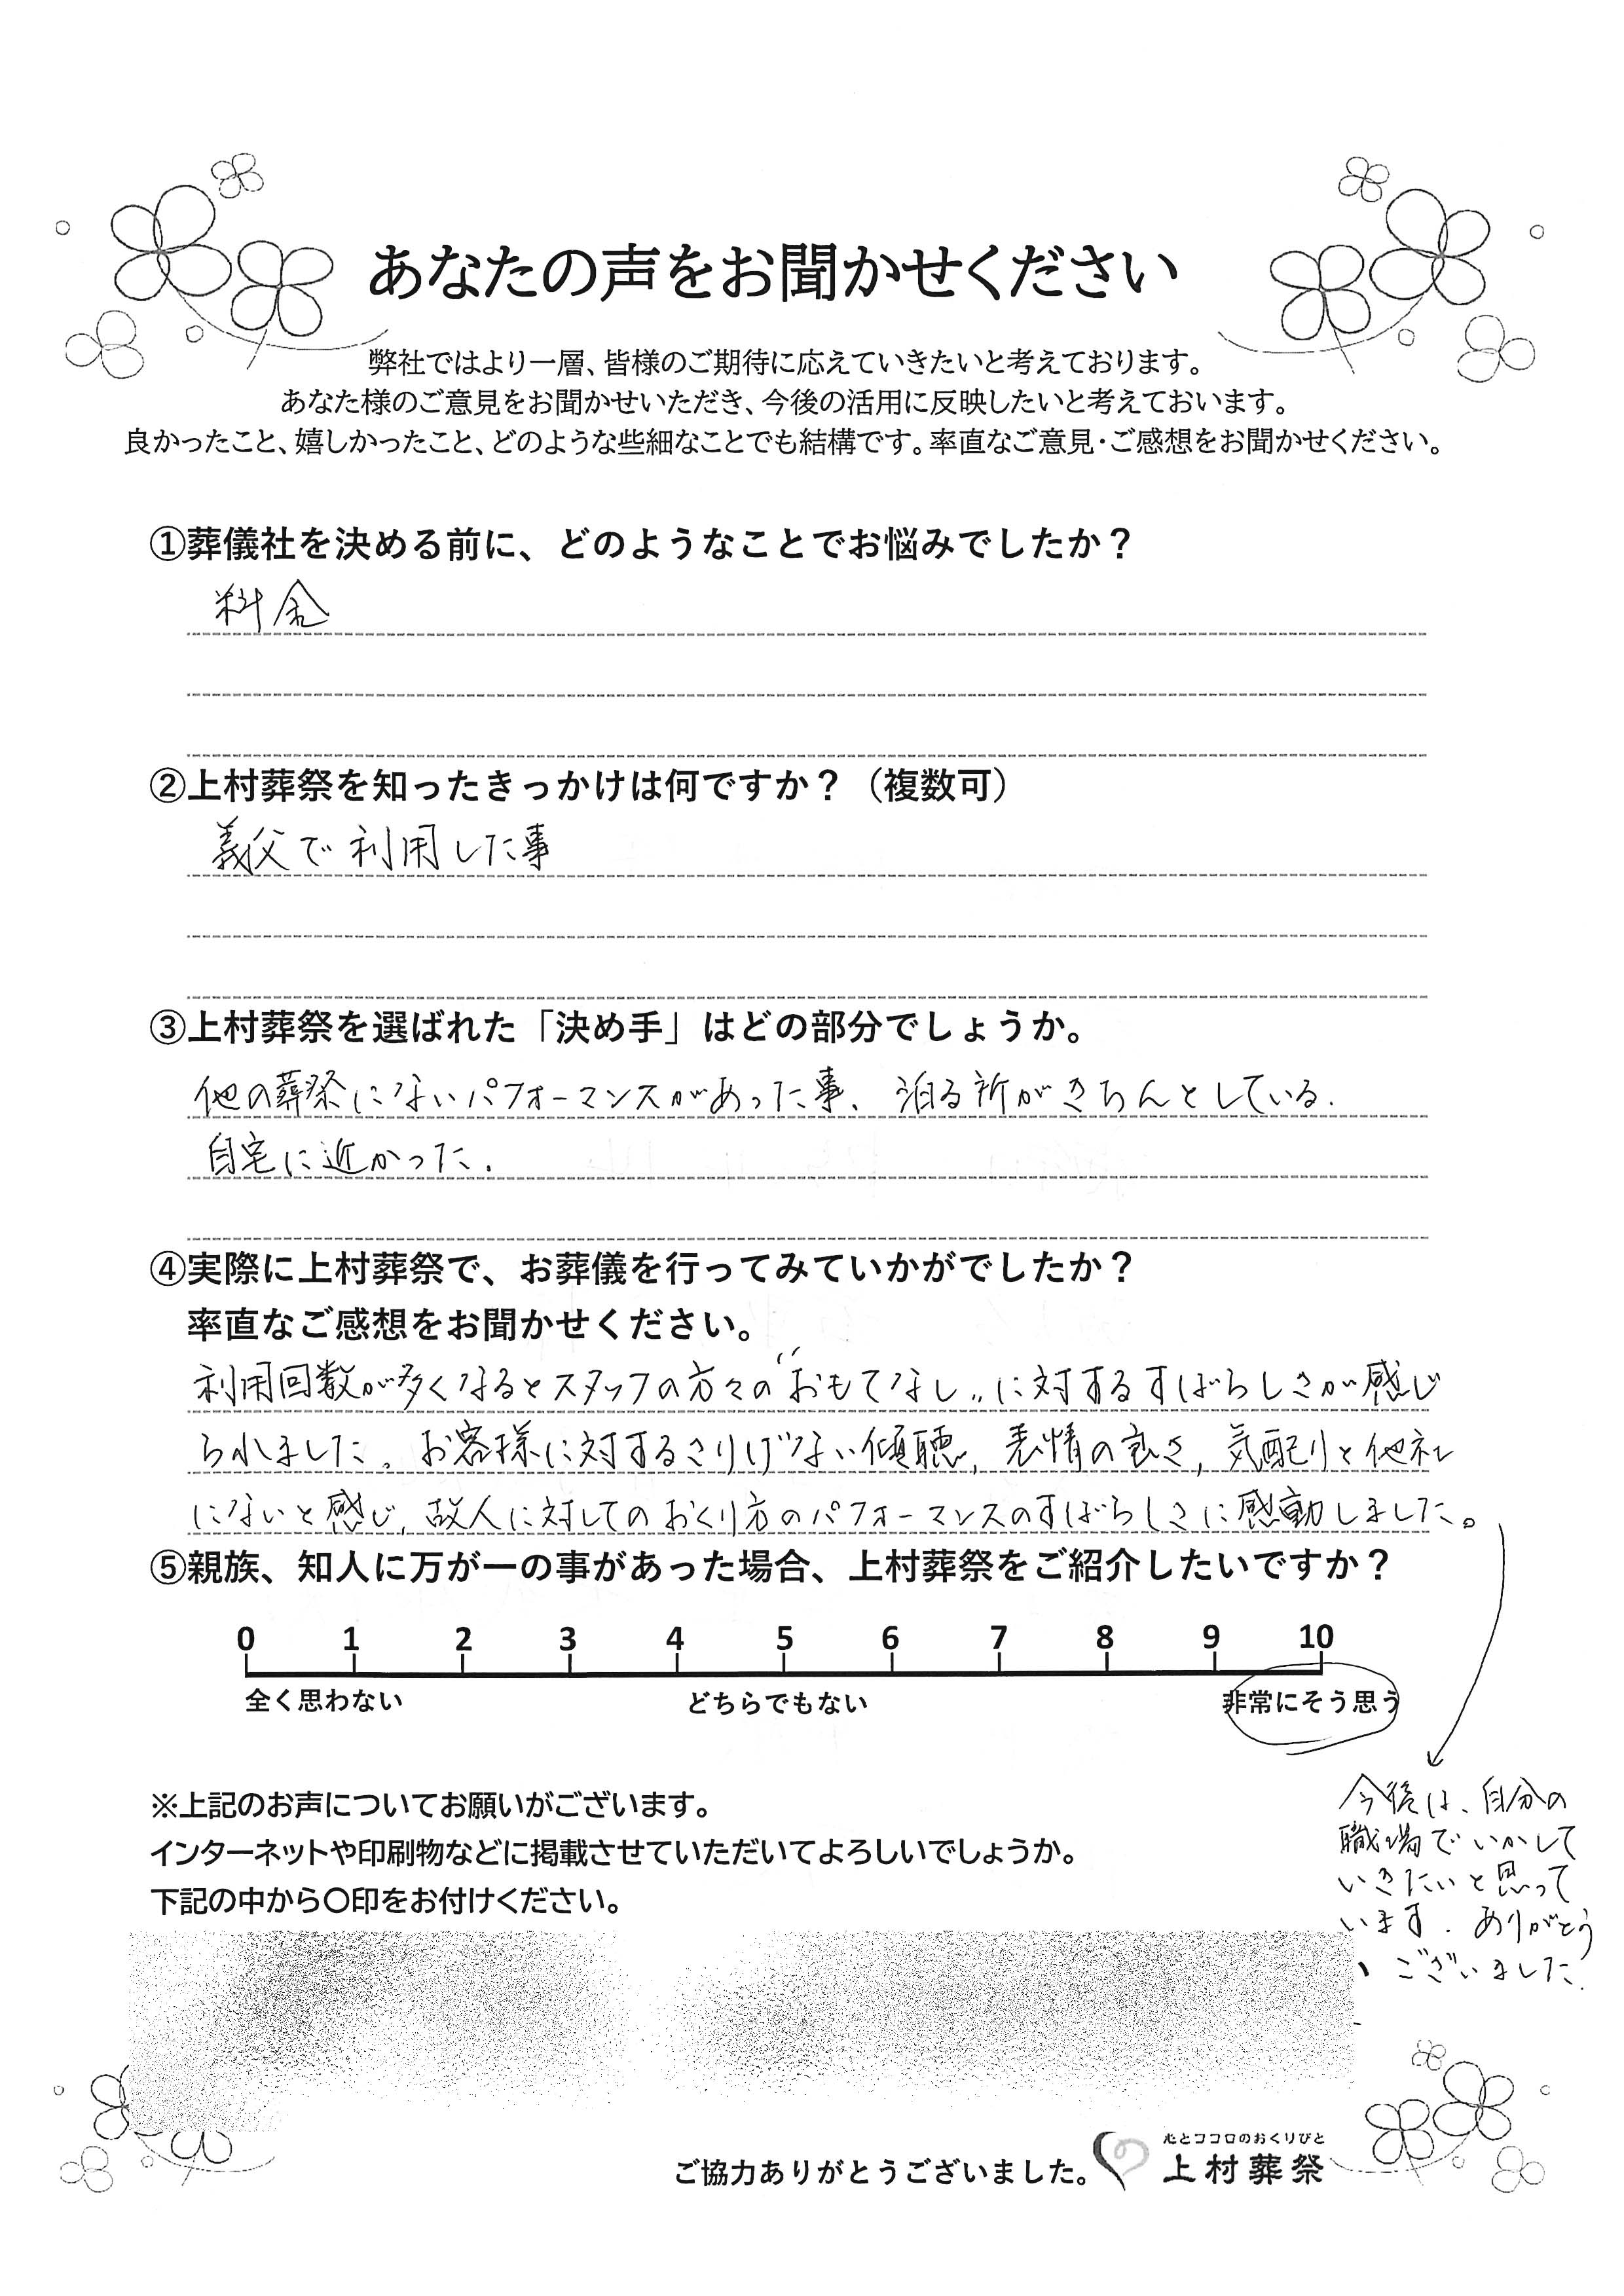 あなたの声をお聞かせください
弊社ではより一層、皆様のご期待に応えていきたいと考えております。
あなた様のご意見をお聞かせいただき、今後の活用に反映したいと考えておいます。
良かったこと、嬉しかったこと、どのような些細なことでも結構です。率直なご意見・ご感想をお聞かせください。
①葬儀社を決める前に、どのようなことでお悩みでしたか？
料金
②上村葬祭を知ったきっかけは何ですか？（複数可）
義父で利用した事
③上村葬祭を選ばれた「決め手」はどの部分でしょうか。
他の葬祭にないパフォーマンスがあった事、泊る所がきちんとしている.
自宅に近かった.
④実際に上村葬祭で、お葬儀を行ってみていかがでしたか？
率直なご感想をお聞かせください。
利用回数が多くなるとスタッフの方々の“おもてなし„に対するすばらしさが感じ
られました。お客様に対するさりげない傾聴, 表情の良さ, 気配りと他社
にないと感じ, 故人に対してのおくり方のパフォーマンスのすばらしさに感動しました。
⑤親族、知人に万が一の事があった場合、上村葬祭をご紹介したいですか？
0 1 2 3 4 5 6 7 8 9 10
全く思わない どちらでもない 非常にそう思う
今後は、自分の
職場でいかして
いきたいと思って
います. ありがとう
ございました.
※上記のお声についてお願いがございます。
インターネットや印刷物などに掲載させていただいてよろしいでしょうか。
下記の中から〇印をお付けください。
ご協力ありがとうございました。
心とココロのおくりびと
上村葬祭